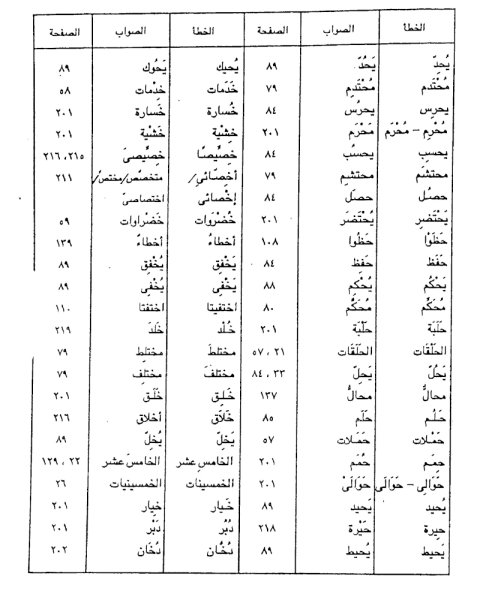 الخطأ الصواب الصفحة الخطأ الصواب الصفحة
يُحِدّ يَحُدّ ٨٩ يُحيك يَحُوك ٨٩
مُحْتَدم مُحْتَدِم ٧٩ خَدَمات خِدْمات ٥٨
يحرِس يحرُس ٨٤ خُسارة خَسارة ٢٠١
مُحْرِم – مُحْرَم مَحْرَم ٢٠١ خِشْية خَشْية ٢٠١
يحسِب يحسُب ٨٤ خصِّيصًا خصِّيصَى ٢١٥، ٢١٦
محتشَم محتشِم ٧٩ أخصّائي/ متخصّص/مختصّ/ ٢١١
حصُل حصَل ٨٤ إخْصائي اختصاصى
يَحْتَضِر يُحْتَضَر ٢٠١ خُضْرَوات خَضْراوات ٥٩
حَظَوْا حَظُوا ١٠٨ أخطاءُ أخطاءٌ ١٣٩
حَفَظ حَفِظ ٨٤ يَخْفق يُخْفِق ٨٩
يَحْكُم يُحْكِم ٨٨ يَخْفى يُخْفِى ٨٩
مُحَكِّم مُحَكَّم ٨٠ اختفيتا اختفتا ١١٠
حَلَبَة حَلْبَة ٢٠١ خُلْد خَلَد ٢١٩
الحلَقات الحلْقات ٢١، ٥٧ مختلَط مختلِط ٧٩
يَحُلّ يَحِلّ ٣٣، ٨٤ مختلَف مختلِف ٧٩
محالٌّ محالُّ ١٣٧ خَلِق خَلَق ٢٠١
حَلُم حَلَم ٨٥ خَلاّق أخلاق ٢١٦
حَمْلات حَمَلات ٥٧ يَخِلّ يُخِلّ ٨٩
حِمَم حُمَم ٢٠١ الخامسِ عشر الخامسَ عشر ٢٢، ١٢٩
حَوَالِى – حَوَالَى حَوَالَىْ ٢٠١ الخمسينات الخمسينيات ٢٦
يُحيد يَحيد ٨٩ خَيار خِيار ٢٠١
حِيرة حَيْرة ٢١٨ دُبُر دَبْر ٢٠١
يَحيط يُحيط ٨٩ دُخَّان دُخَان ٢٠٢